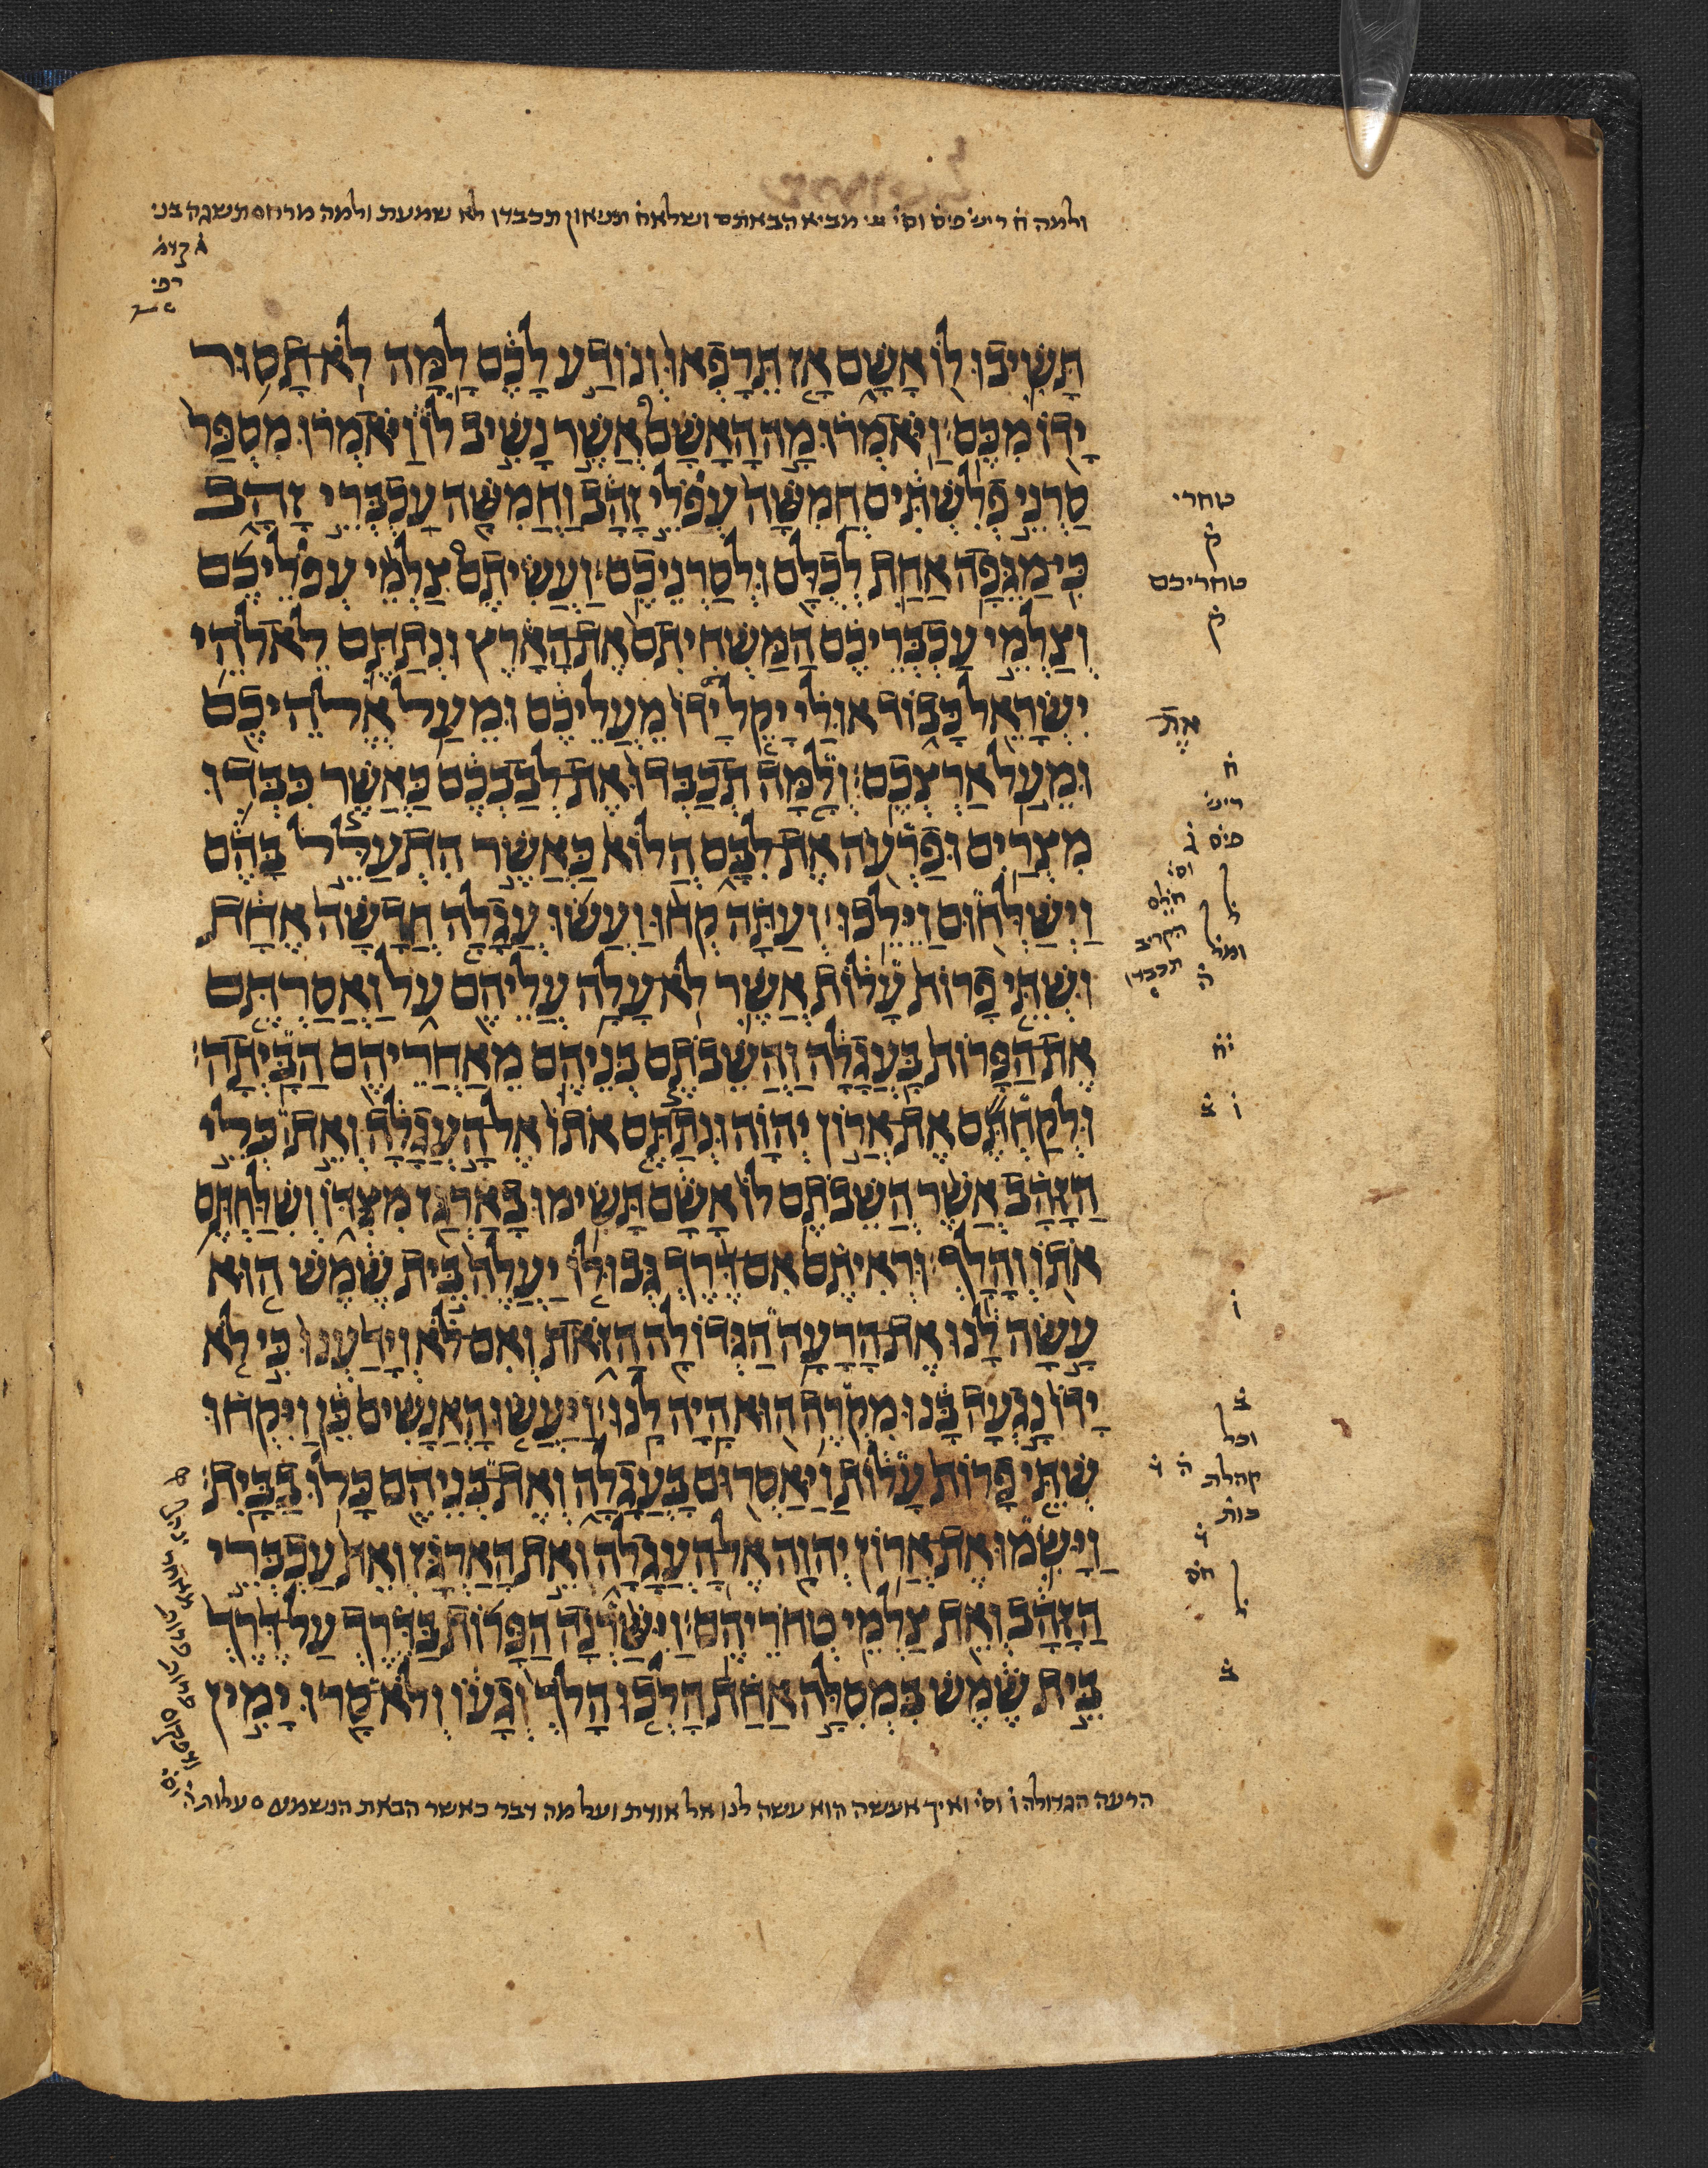 ולמה ח ריש פיס וסי מביא הבאתם ושלאח תניאון תכבדו לא שמעת ולמה מרחם תשגה בני
תָּשִׁיבוּ לוֹ אָשָׁם אָז תֵּרָפְאוּ וְנוֹדַע לָכֶם לָמָּה לֹא תָסוּר
יָדוֹ מִכֶּם׃ וַיֹּאמְרוּ מָה הָאָשָׁם אֲשֶׁר נָשִׁיב לוֹ וַיֹּאמְרוּ מִסְפַּר
סַרְנֵי פְלִשְׁתִּים חֲמִשָּׁה עְפֹלֵי זָהָב וַחֲמִשָּׁה עַכְבְּרֵי זָהָב
כִּי מַגֵּפָה אַחַת לְכֻלָּם וּלְסַרְנֵיכֶם׃ וַעֲשִׂיתֶם צַלְמֵי עְפֹלֵיכֶם
וְצַלְמֵי עַכְבְּרֵיכֶם הַמַּשְׁחִיתִם אֶת הָאָרֶץ וּנְתַתֶּם לֵאלֹהֵי
יִשְׂרָאֵל כָּבוֹד אוּלַי יָקֵל יָדוֹ מֵעֲלֵיכֶם וּמֵעַל אֱלֹהֵיכֶם
וּמֵעַל אַרְצְכֶם׃ וְלָמָּה תְכַבְּדוּ אֶת לְבַבְכֶם כַּאֲשֶׁר כִּבְּדוּ
מִצְרַיִם וּפַרְעֹה אֶת לִבָּם הֲלוֹא כַּאֲשֶׁר הִתְעַלֵּל בָּהֶם
וַיְשַׁלְּחוּם וַיֵּלֵכוּ׃ וְעַתָּה קְחוּ וַעֲשׂוּ עֲגָלָה חֲדָשָׁה אֶחָת
וּשְׁתֵּי פָרוֹת עָלוֹת אֲשֶׁר לֹא עָלָה עֲלֵיהֶם עֹל וַאֲסַרְתֶּם
אֶת הַפָּרוֹת בָּעֲגָלָה וַהֲשֵׁבֹתֶם בְּנֵיהֶם מֵאַחֲרֵיהֶם הַבָּיְתָה׃
וּלְקַחְתֶּם אֶת אֲרוֹן יְהוָה וּנְתַתֶּם אֹתוֹ אֶל הָעֲגָלָה וְאֵת כְּלֵי
הַזָּהָב אֲשֶׁר הֲשֵׁבֹתֶם לוֹ אָשָׁם תָּשִׂימוּ בָאַרְגַּז מִצִּדּוֹ וְשִׁלַּחְתֶּם
אֹתוֹ וְהָלָךְ׃ וּרְאִיתֶם אִם דֶּרֶךְ גְּבוּלוֹ יַעֲלֶה בֵּית שֶׁמֶשׁ הוּא
עָשָׂה לָנוּ אֶת הָרָעָה הַגְּדוֹלָה הַזֹּאת וְאִם לֹא וְיָדַעְנוּ כִּי לֹא
יָדוֹ נָגְעָה בָּנוּ מִקְרֶה הוּא הָיָה לָנוּ׃ וַיַּעֲשׂוּ הָאֲנָשִׁים כֵּן וַיִּקְחוּ
שְׁתֵּי פָרוֹת עָלוֹת וַיַּאַסְרוּם בָּעֲגָלָה וְאֶת בְּנֵיהֶם כָּלוּ בַבָּיִת׃
וַיָּשִׂמוּ אֶת אֲרוֹן יְהוָה אֶל הָעֲגָלָה וְאֵת הָאַרְגַּז וְאֵת עַכְבְּרֵי
הַזָּהָב וְאֵת צַלְמֵי טְחֹרֵיהֶם׃ וַיִּשַּׁרְנָה הַפָּרוֹת בַּדֶּרֶךְ עַל דֶּרֶךְ
בֵּית שֶׁמֶשׁ בִּמְסִלָּה אַחַת הָלְכוּ הָלֹךְ וְגָעוֹ וְלֹא סָרוּ יָמִין
הרעה הגדולה ו וסי ואיך אעשה הוא עשה לנו אל אודת ועל מה דבר כאשר הבאת הנשמע עלות
טחרי
ק
טחריכם
ק
אֶת
ח
ריש
פיס ג
וסי
ה
יח
ו ב
ו
ב
וכל
קהלת
כות
ב